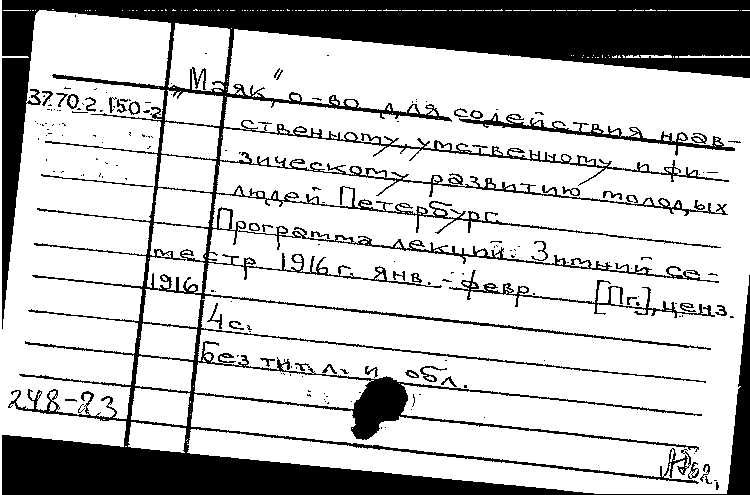 3770.2.150-2
„Маяк", о-во для содействия нрав-
ственному, умственному и фи-
зическому развитию молодых
людей. Петербург.
Программа лекций. Зимний се-
местр 1916 г. янв.-февр. [Пг.], ценз.
1916.
4 с.
Без тит. л. и обл.
248-23